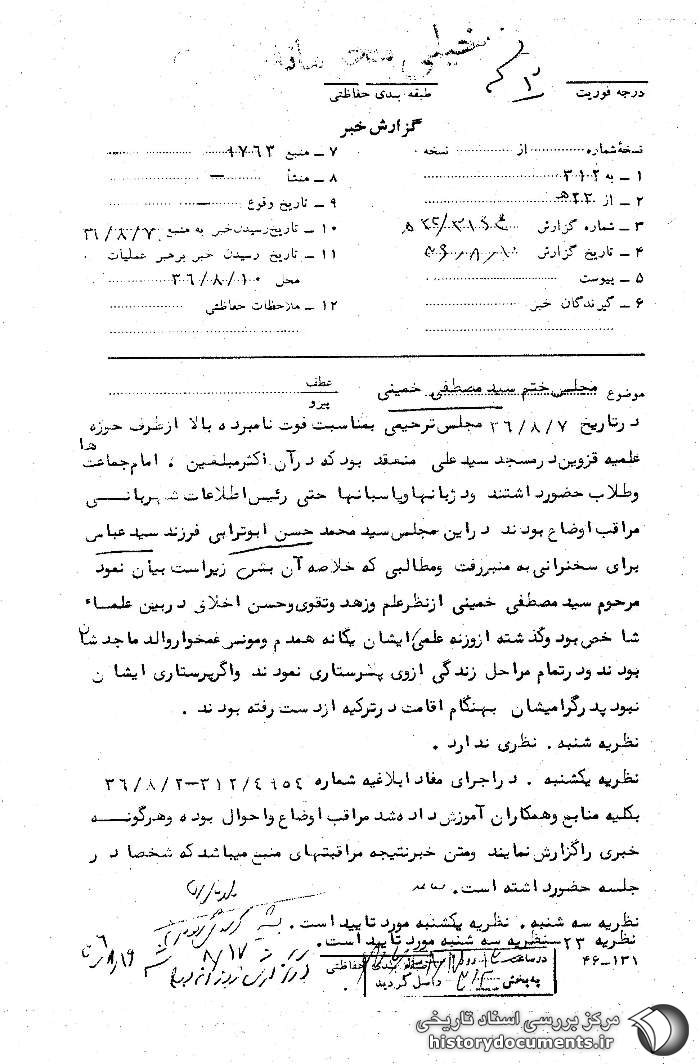 خیلی محرمانه
درجه فوریت
طبقه بندی حفاظتی
گزارش خبر
نسخهٔ شماره از نسخه
۱ ـ به ۳۱۲
۲ ـ از ۲۳هـ
۳ ـ شماره گزارش
۴ ـ تاریخ گزارش
۵ ـ پیوست
۶ ـ گیرندگان خبر
۷ ـ منبع ۹۷۶۳
۸ ـ منشأ ـ
۹ ـ تاریخ وقوع ـ
۱۰ ـ تاریخ رسیدن خبر به منبع ۳۶/۸/۷
۱۱ ـ تاریخ رسیدن خبر برهبر عملیات
محل ۳۶/۸/۱۰
۱۲ ـ ملاحظات حفاظتی
موضوع مجلس ختم سید مصطفی خمینی
عطف
پیرو
درتاریخ ۳۶/۸/۷ مجلس ترحیمی بمناسبت فوت نامبرده بالا ازطرف حوزه
علمیه قزوین درمسجد سیدعلی منعقد بود که درآن اکثرمبلغین ، امام جماعت ها
وطلاب حضورداشتند ودژبانها وپاسبانها حتی رئیس اطلاعات شهربانی
مراقب اوضاع بودند دراین مجلس سید محمد حسن ابوترابی فرزند سید عباس
برای سخنرانی به منبررفت ومطالبی که خلاصه آن بشرح زیراست بیان نمود
مرحوم سید مصطفی خمینی ازنظرعلم وزهد وتقوی وحسن اخلاق دربین علماء
شاخص بود وگذشته ازوزنه علمی ایشان یگانه همدم ومونس غمخواروالد ماجدشان
بودند ودرتمام مراحل زندگی ازوی پشرستاری نمودند واگرپرستاری ایشان
نبود پدرگرامیشان بهنگام اقامت درترکیه ازدست رفته بودند .
نظریه شنبه . نظری ندارد .
نظریه یکشنبه . دراجرای مفاد ابلاغیه شماره ۳۱۲/۴۹۵۴-۳۶/۸/۲
بکلیه منابع وهمکاران آموزش داده شد مراقب اوضاع واحوال بوده وهرگونه
خبری راگزارش نمایند ومتن خبرنتیجه مراقبتهای منبع میباشد که شخصا در
جلسه حضورداشته است .
نظریه سه شنبه . نظریه یکشنبه مورد تایید است .
نظریه ۲۳ ـ نظریه سه شنبه مورد تایید است .
۴۶-۱۳۱
طبقه بندی حفاظتی
درساعت
به بخش ۳۱۲ واصل گردید
مرکز بررسی اسناد تاریخی
historydocuments.ir